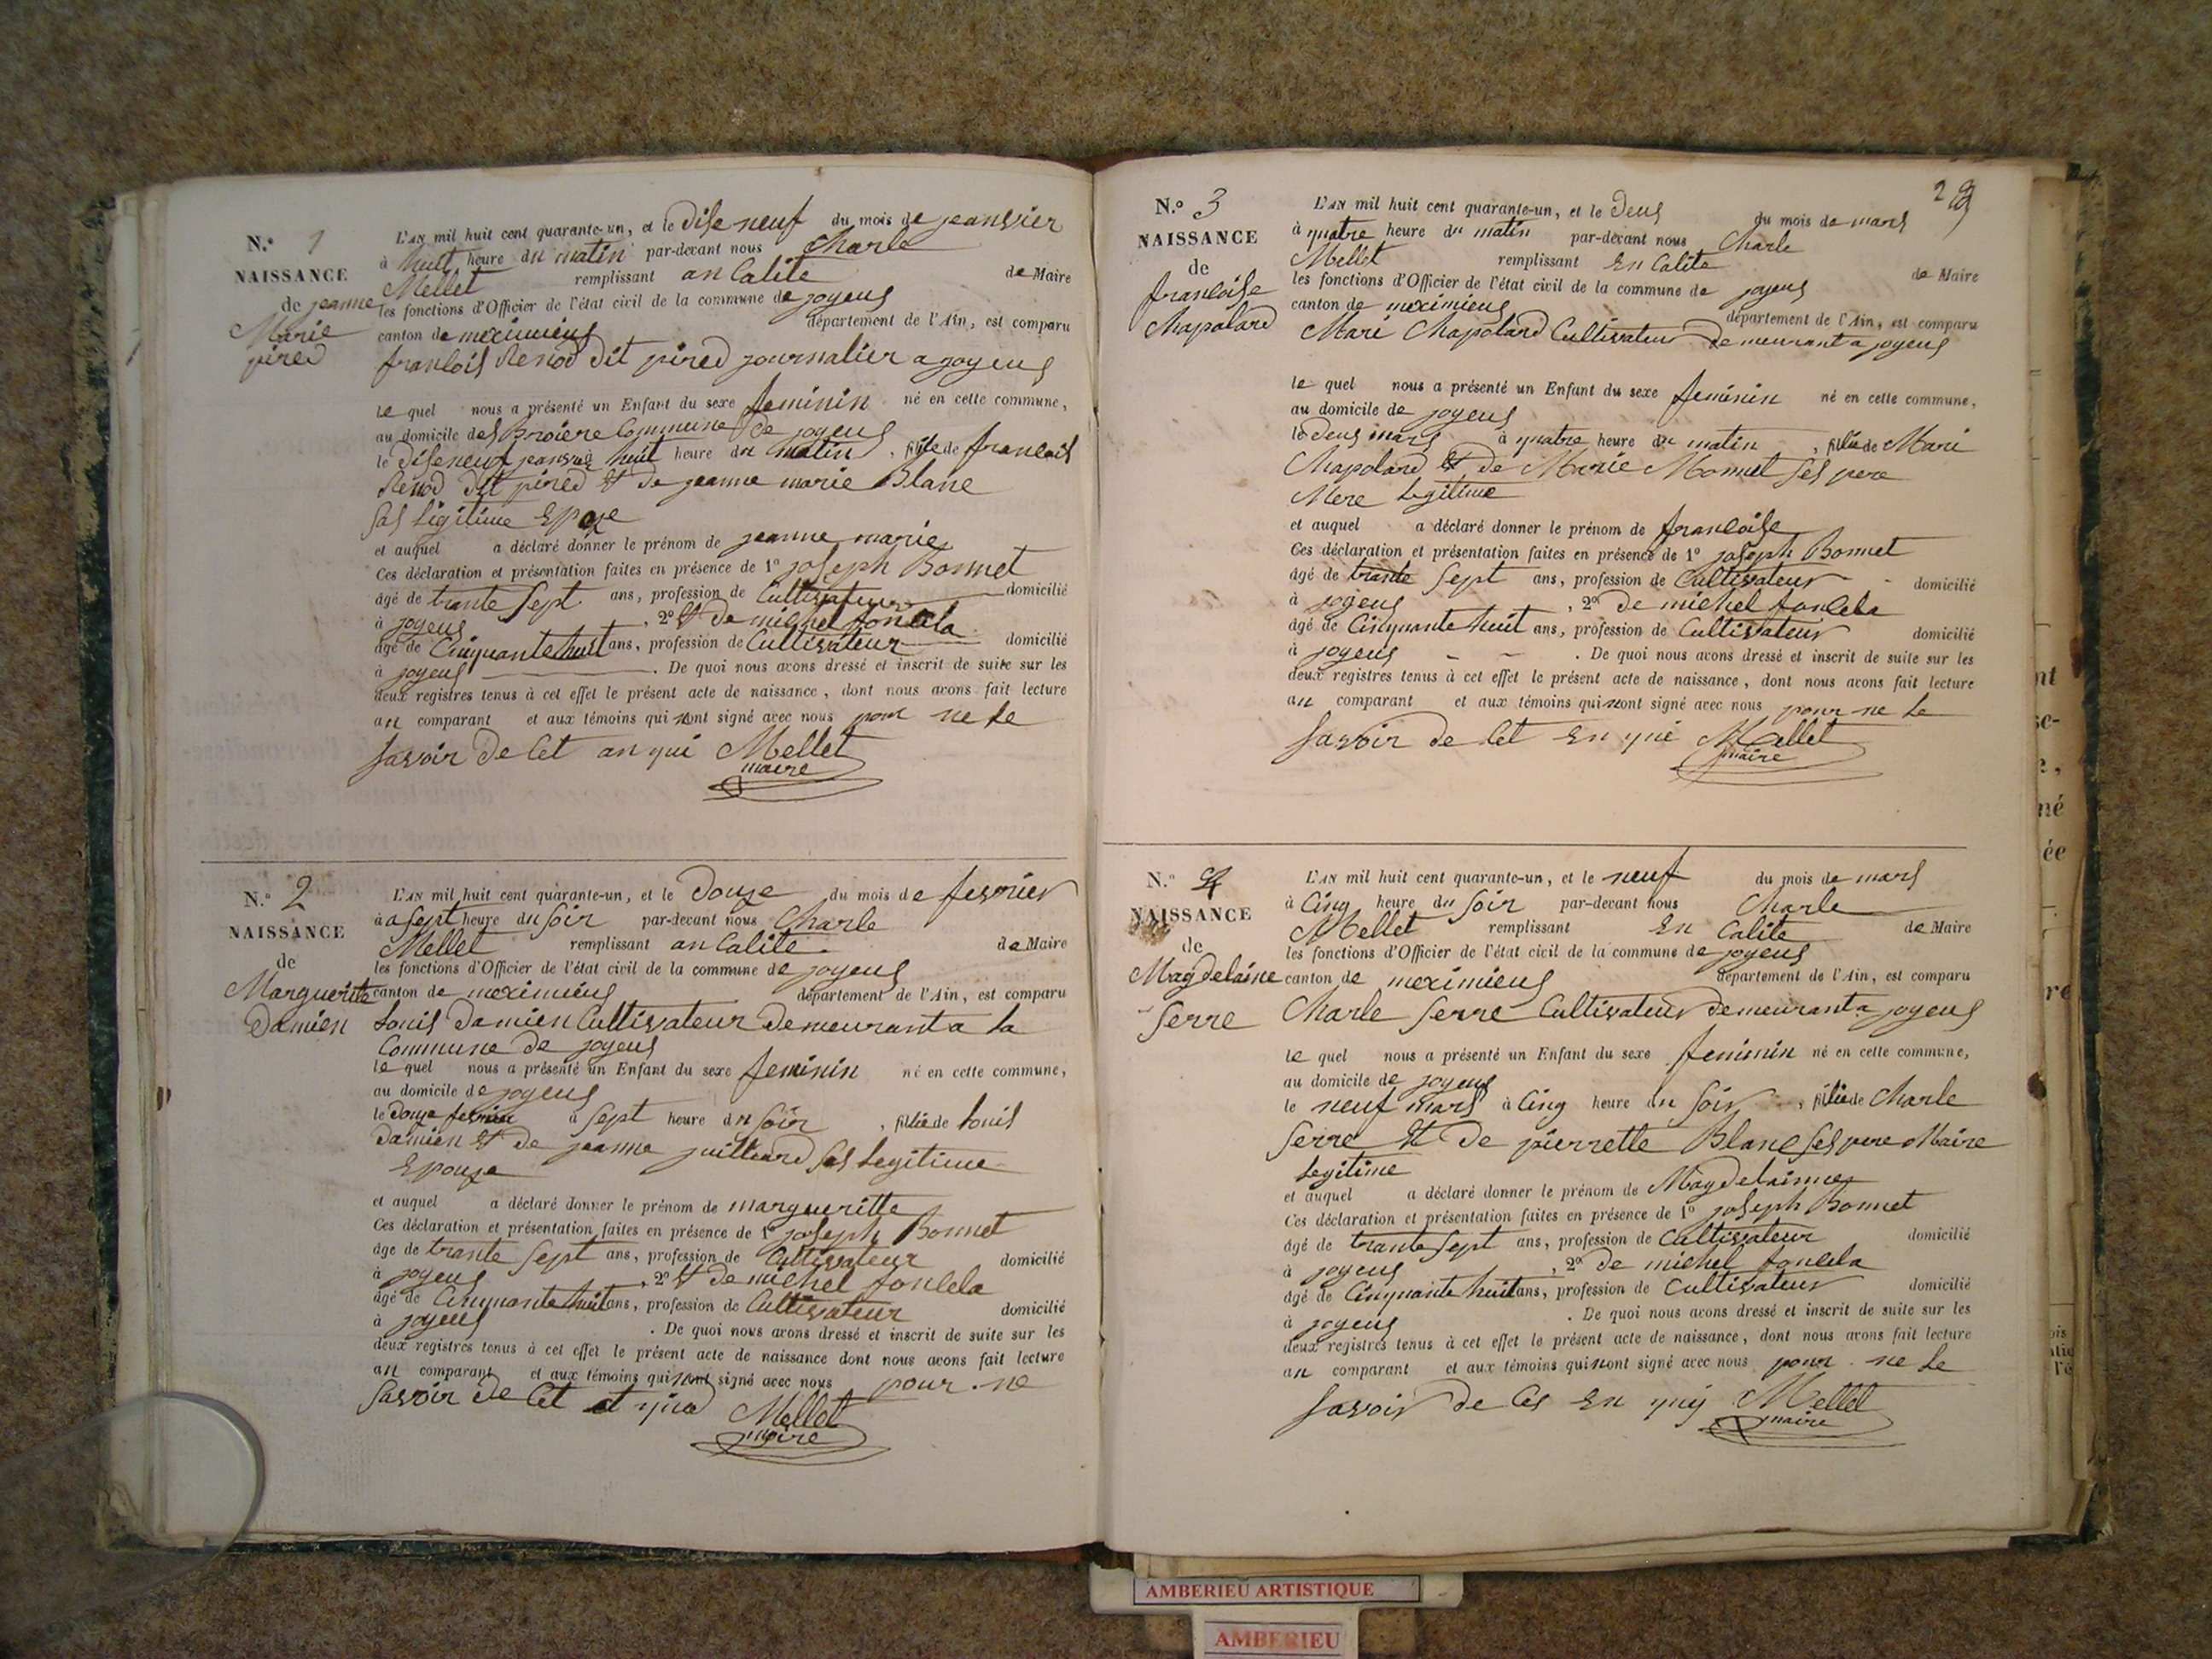 N.° 1
NAISSANCE
de jeanne
Marie
pired
L'AN mil huit cent quarante-un, et le dise neuf du mois de jeansvier
à huit heure du matin par-devant nous Charle
Mellet remplissant an Calite de Maire
les fonctions d'Officier de l'état civil de la commune de joyeus
canton de meximieus département de l'Ain, est comparu
francois Renod dit pired journalier a joyeus
le quel nous a présenté un Enfant du sexe feminin né en cette commune,
au domicile des Broiere Commune de joyeus
le diseneuf jeansvié à huit heure du matin, fille de francois
Renod dit pired et de jeanne marie Blanc
Sas Ligitime Epoze
et auquel a déclaré donner le prénom de jeanne marie
Ces déclaration et présentation faites en présence de 1° joseph Bonnet
âgé de trante sept ans, profession de Cultivateur domicilié
à joyeus, 2° et de michel fonclela
âgé de Cinquante huit ans, profession de Cultivateur domicilié
à joyeus. De quoi nous avons dressé et inscrit de suite sur les
deux registres tenus à cet effet le présent acte de naissance, dont nous avons fait lecture
au comparant et aux témoins qui nont signé avec nous pour ne le
savoir de Cet an qui Mellet
maire
N.° 2
NAISSANCE
de
Marguerite
Damien
L'AN mil huit cent quarante-un, et le douze du mois de fevrier
à a sept heure du soir par-devant nous Charle
Mellet remplissant an Calite de Maire
les fonctions d'Officier de l'état civil de la commune de joyeus
canton de meximieus département de l'Ain, est comparu
Louis Damien Cultivateur demeurant a la
Commune de joyeus
le quel nous a présenté un Enfant du sexe feminin né en cette commune,
au domicile de joyeus
le douze fevrier à sept heure du soir, fille de Louis
Damien et de jeanne juilleard Sas Legitime
Epouze
et auquel a déclaré donner le prénom de margueritte
Ces déclaration et présentation faites en présence de 1° joseph Bonnet
âgé de trante sept ans, profession de Cultivateur domicilié
à joyeus, 2° et de michel fonclela
âgé de Cinquante huit ans, profession de Cultivateur domicilié
à joyeus. De quoi nous avons dressé et inscrit de suite sur les
deux registres tenus à cet effet le présent acte de naissance dont nous avons fait lecture
au comparant et aux témoins qui nont signé avec nous pour ne
savoir de Cet Mellet
maire
N.° 3
NAISSANCE
de
francoise
Chapolard
L'AN mil huit cent quarante-un, et le deus du mois de mars
à quatre heure du matin par-devant nous Charle
Mellet remplissant En Calite de Maire
les fonctions d'Officier de l'état civil de la commune de joyeus
canton de meximieus département de l'Ain, est comparu
Mari Chapolard Cultivateur demeurant a joyeus
le quel nous a présenté un Enfant du sexe feminin né en cette commune,
au domicile de joyeus
le deus mars à quatre heure du matin, fille de Mari
Chapolard et de Marie Monnet ses pere
Mere Legitime
et auquel a déclaré donner le prénom de francoise
Ces déclaration et présentation faites en présence de 1° joseph Bonnet
âgé de trante sept ans, profession de Cultivateur domicilié
à joyeus, 2° de michel fonclela
âgé de Cinquante huit ans, profession de Cultivateur domicilié
à joyeus. De quoi nous avons dressé et inscrit de suite sur les
deux registres tenus à cet effet le présent acte de naissance, dont nous avons fait lecture
au comparant et aux témoins qui nont signé avec nous pour ne le
savoir de Cet En qui Mellet
maire
N.° 4
NAISSANCE
de
Magdelaine
Serre
L'AN mil huit cent quarante-un, et le neuf du mois de mars
à Cinq heure du soir par-devant nous Charle
Mellet remplissant En Calite de Maire
les fonctions d'Officier de l'état civil de la commune de joyeus
canton de meximieus département de l'Ain, est comparu
Charle Serre Cultivateur demeurant a joyeus
le quel nous a présenté un Enfant du sexe feminin né en cette commune,
au domicile de joyeus
le neuf mars à Cinq heure du soir, fille de Charle
Serre et de pierrette Blanc ses pere Maire
Legitime
et auquel a déclaré donner le prénom de Magdelainne
Ces déclaration et présentation faites en présence de 1° joseph Bonnet
âgé de trante sept ans, profession de Cultivateur domicilié
à joyeus, 2° de michel fonclela
âgé de Cinquante huit ans, profession de Cultivateur domicilié
à joyeus. De quoi nous avons dressé et inscrit de suite sur les
deux registres tenus à cet effet le présent acte de naissance, dont nous avons fait lecture
au comparant et aux témoins qui nont signé avec nous pour ne le
savoir de Ces En quij Mellet
maire
AMBERIEU ARTISTIQUE
AMBERIEU